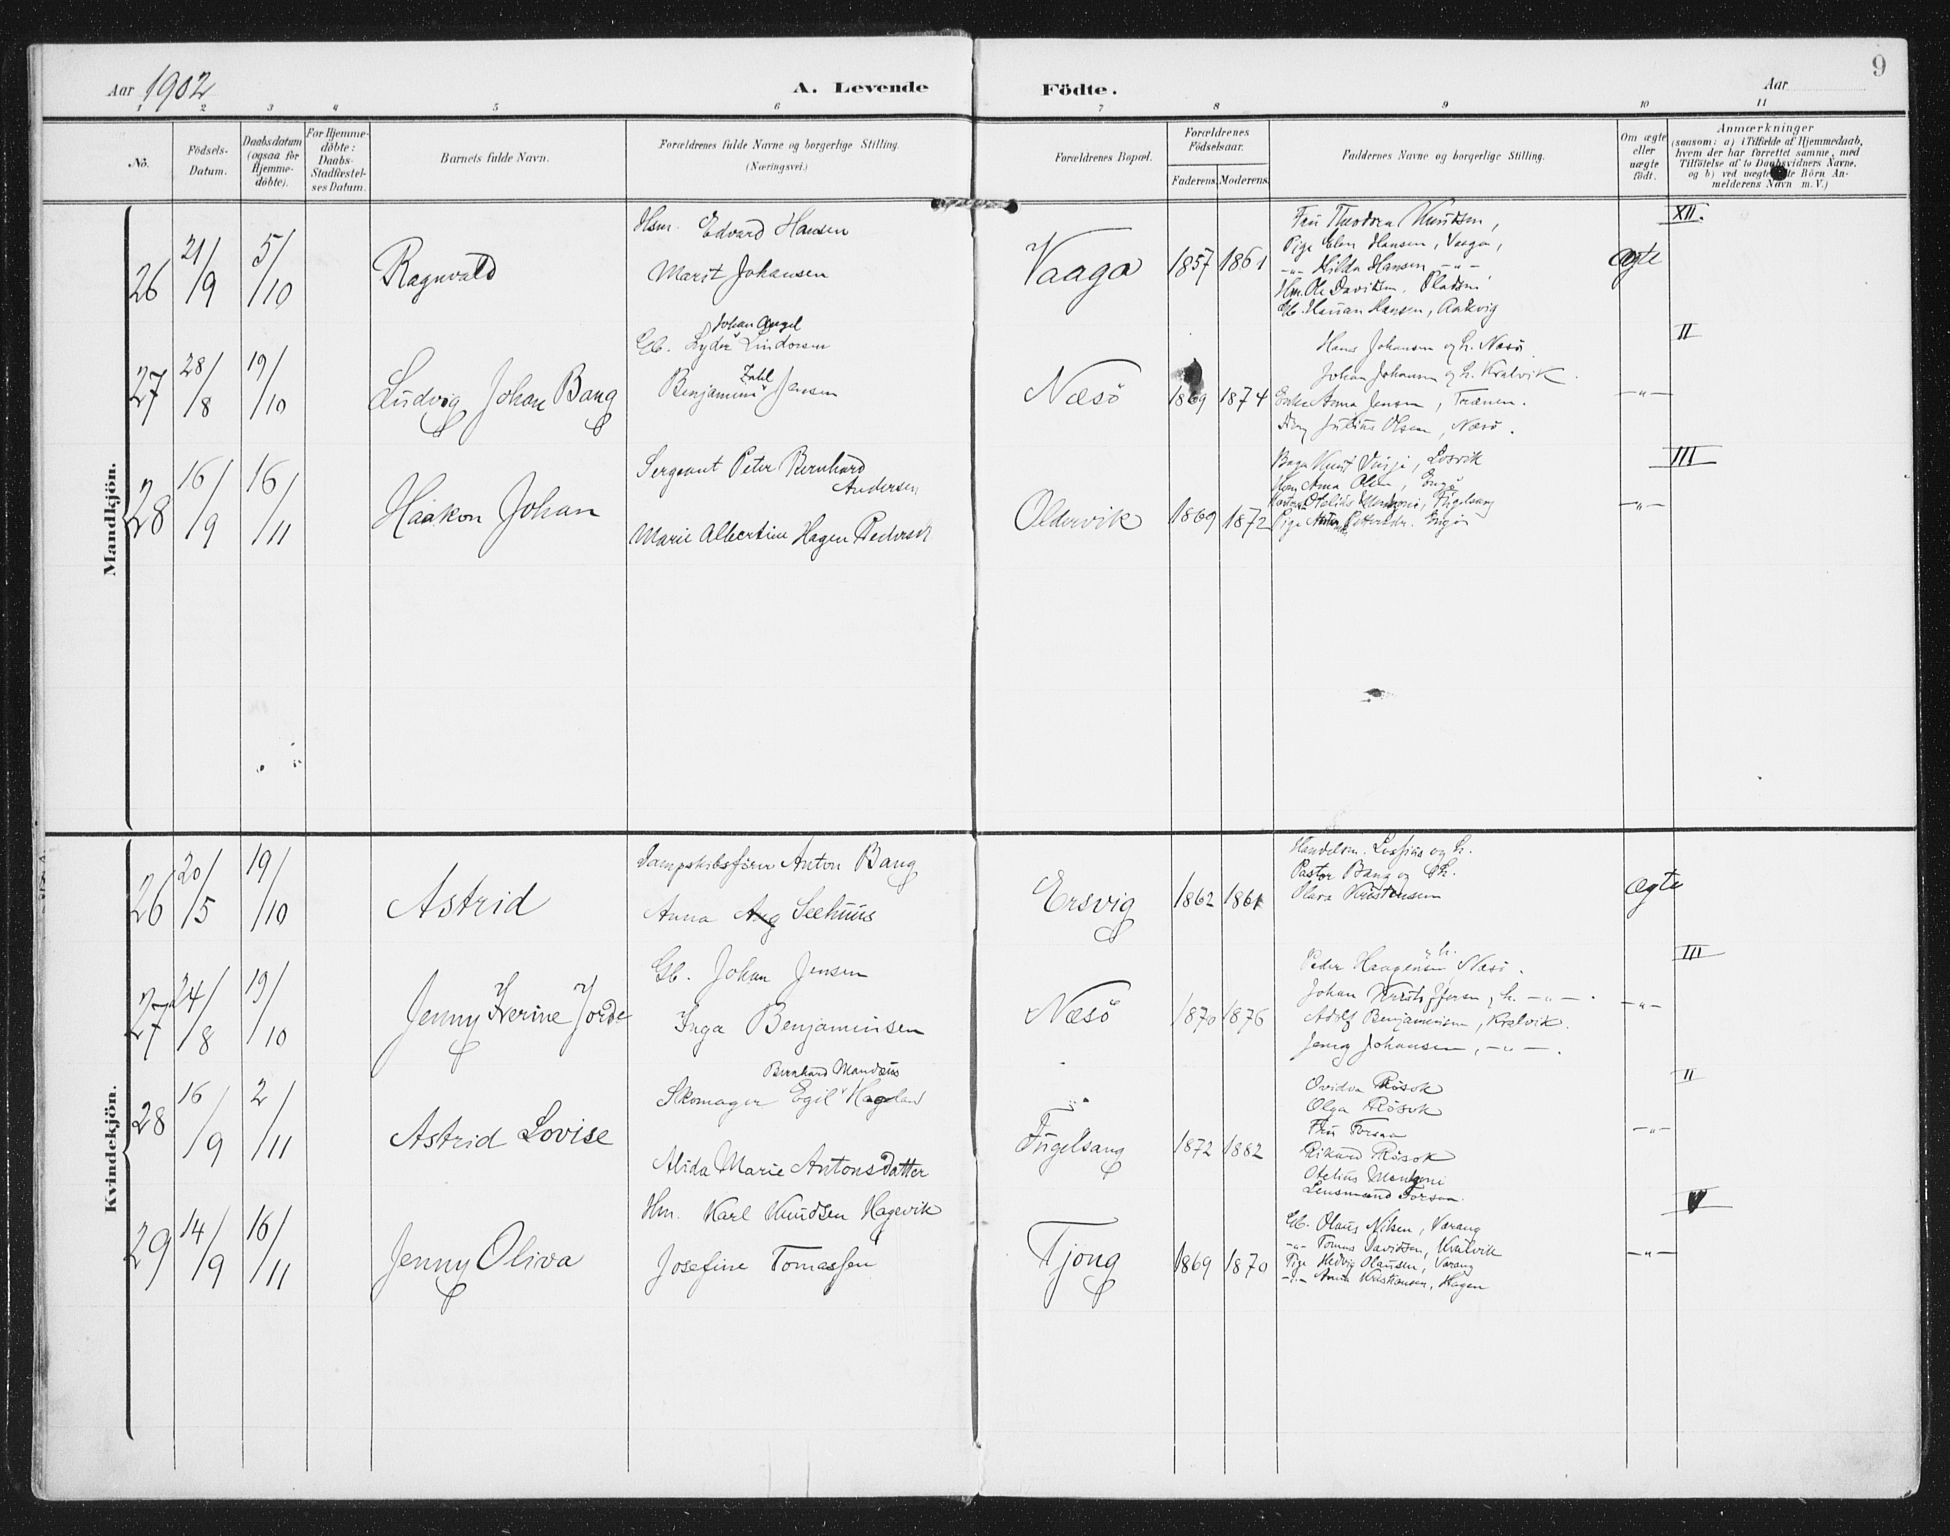 9
Aar 1902 A. Levende Födte. Aar
1 2 3 4 5 6 7 8 9 10 11
No. Födsels-Datum. Daabsdatum (ogsaa for Hjemme-döbte). For Hjemme-döbte: Daabs-Stadfæstel-ses Datum. Barnets fulde Navn. Forældrenes fulde Navne og borgerlige Stilling. (Næringsvei.) Forældrenes Bopæl. Forældrenes Födselsaar. Faderens. Moderens. Faddernes Navne og borgerlige Stilling. Om ægte eller uægte födt. Anmærkninger
(saasom: a) i Tilfælde af Hjemmedaab,
hvem der har forrettet samme, med
Tilföielse af to Daabsvidners Navne,
og b) ved uægte Börn An-
melderens Navn m. V.)
Mandkjön.
26 21/9 5/10 Ragnvald
Hsm. Edvard Hansen
Marit Johansen
Vaaga 1857 1861
Fru Theodora Knudsen,
Pige Elen Hansen, Vaaga,
-"- Hilda Hansen -"-
Hm. Ole Davidsen, Pladsen
Gb. Hansen, Aakvig
ægte XII.
27 28/8 19/10 Ludvig Johan Bang
Johan Angel
Gb. Lyder Lindorsen
Zahl
Benjamine Jensen
Næsö 1869 1874
Hans Johansen og h. Næsö.
Johan Johansen og h. Kralvik.
Enke Anna Jensen, Trænen.
Julius Olsen, Næsö.
-"- II
28 16/9 16/11 Haakon Johan
Sergeant Peter Bernhard
Andersen
Marie Albertine Hagen Pedersdt
Oldervik 1869 1872
Anna Olsen, Engö
Otelius, Fugelsang
Pige Engö
-"- III
Kvindekjön.
26 20/5 19/10 Astrid
Dampskibsförer Anton Bang
Anna Aug Seehuus
Ersvig 1862 1861
Handelsm. og h.
Pastor Bang og h.
Olava Kristensen
ægte
27 24/8 19/10 Jenny Iverine Jorde
Gb. Johan Jensen
Inga Benjaminsen
Næsö 1870 1876
h.
Peder Haagensen Næsö.
Johan Kristoffersen, h. -"-.
Adolf Benjaminsen, Kralvik.
Jenny Johansen, -"-.
-"- III
28 16/9 2/11 Astrid Lovise
Bernhard Mandeus
Skomager Egil Hageland
Alida Marie Antonsdatter
Fugelsang 1872 1882
Ovidia Rösok
Olga Rösok
Fru Forsaa
Rikard Rösok
Otelius
Lensmand Forsaa.
-"- II
29 14/9 16/11 Jenny Oliva
Hm. Karl Knudsen Hagevik
Josefine Tomassen
Tjong 1869 1870
Gb. Olaus Nilsen, Værang
-"- Tomas Davidsen, Kralvik
Pige Hedvig Olausen, Værang
-"- Anna Kristiansen, Hagen
-"- V